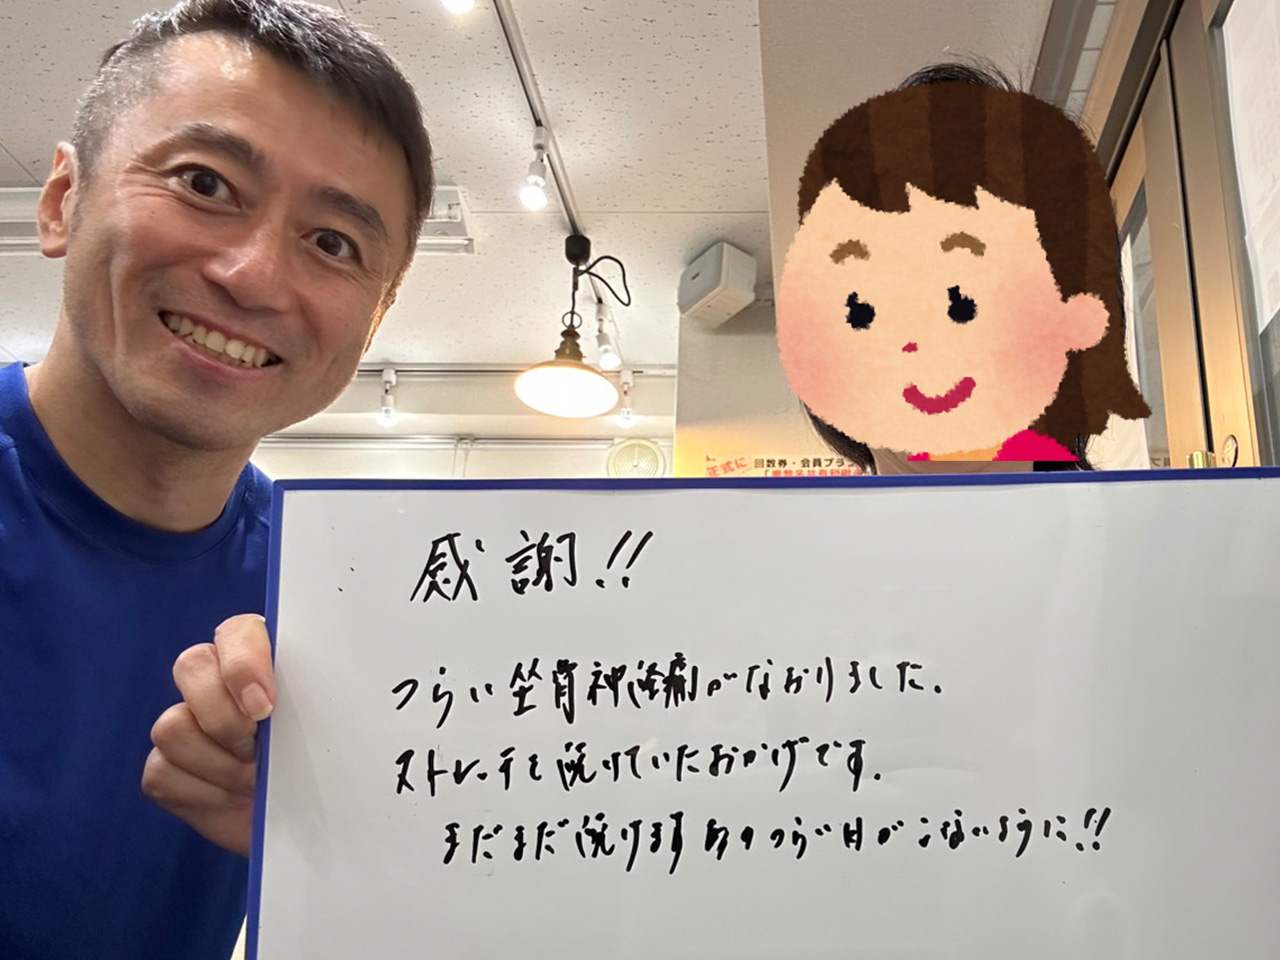 正式に 回数券・会員プラ
感謝!!
つらい坐骨神経痛がなおりました.
ストレッチを続けていたおかげです.
まだまだ続けます あのつらい日がこないように!!